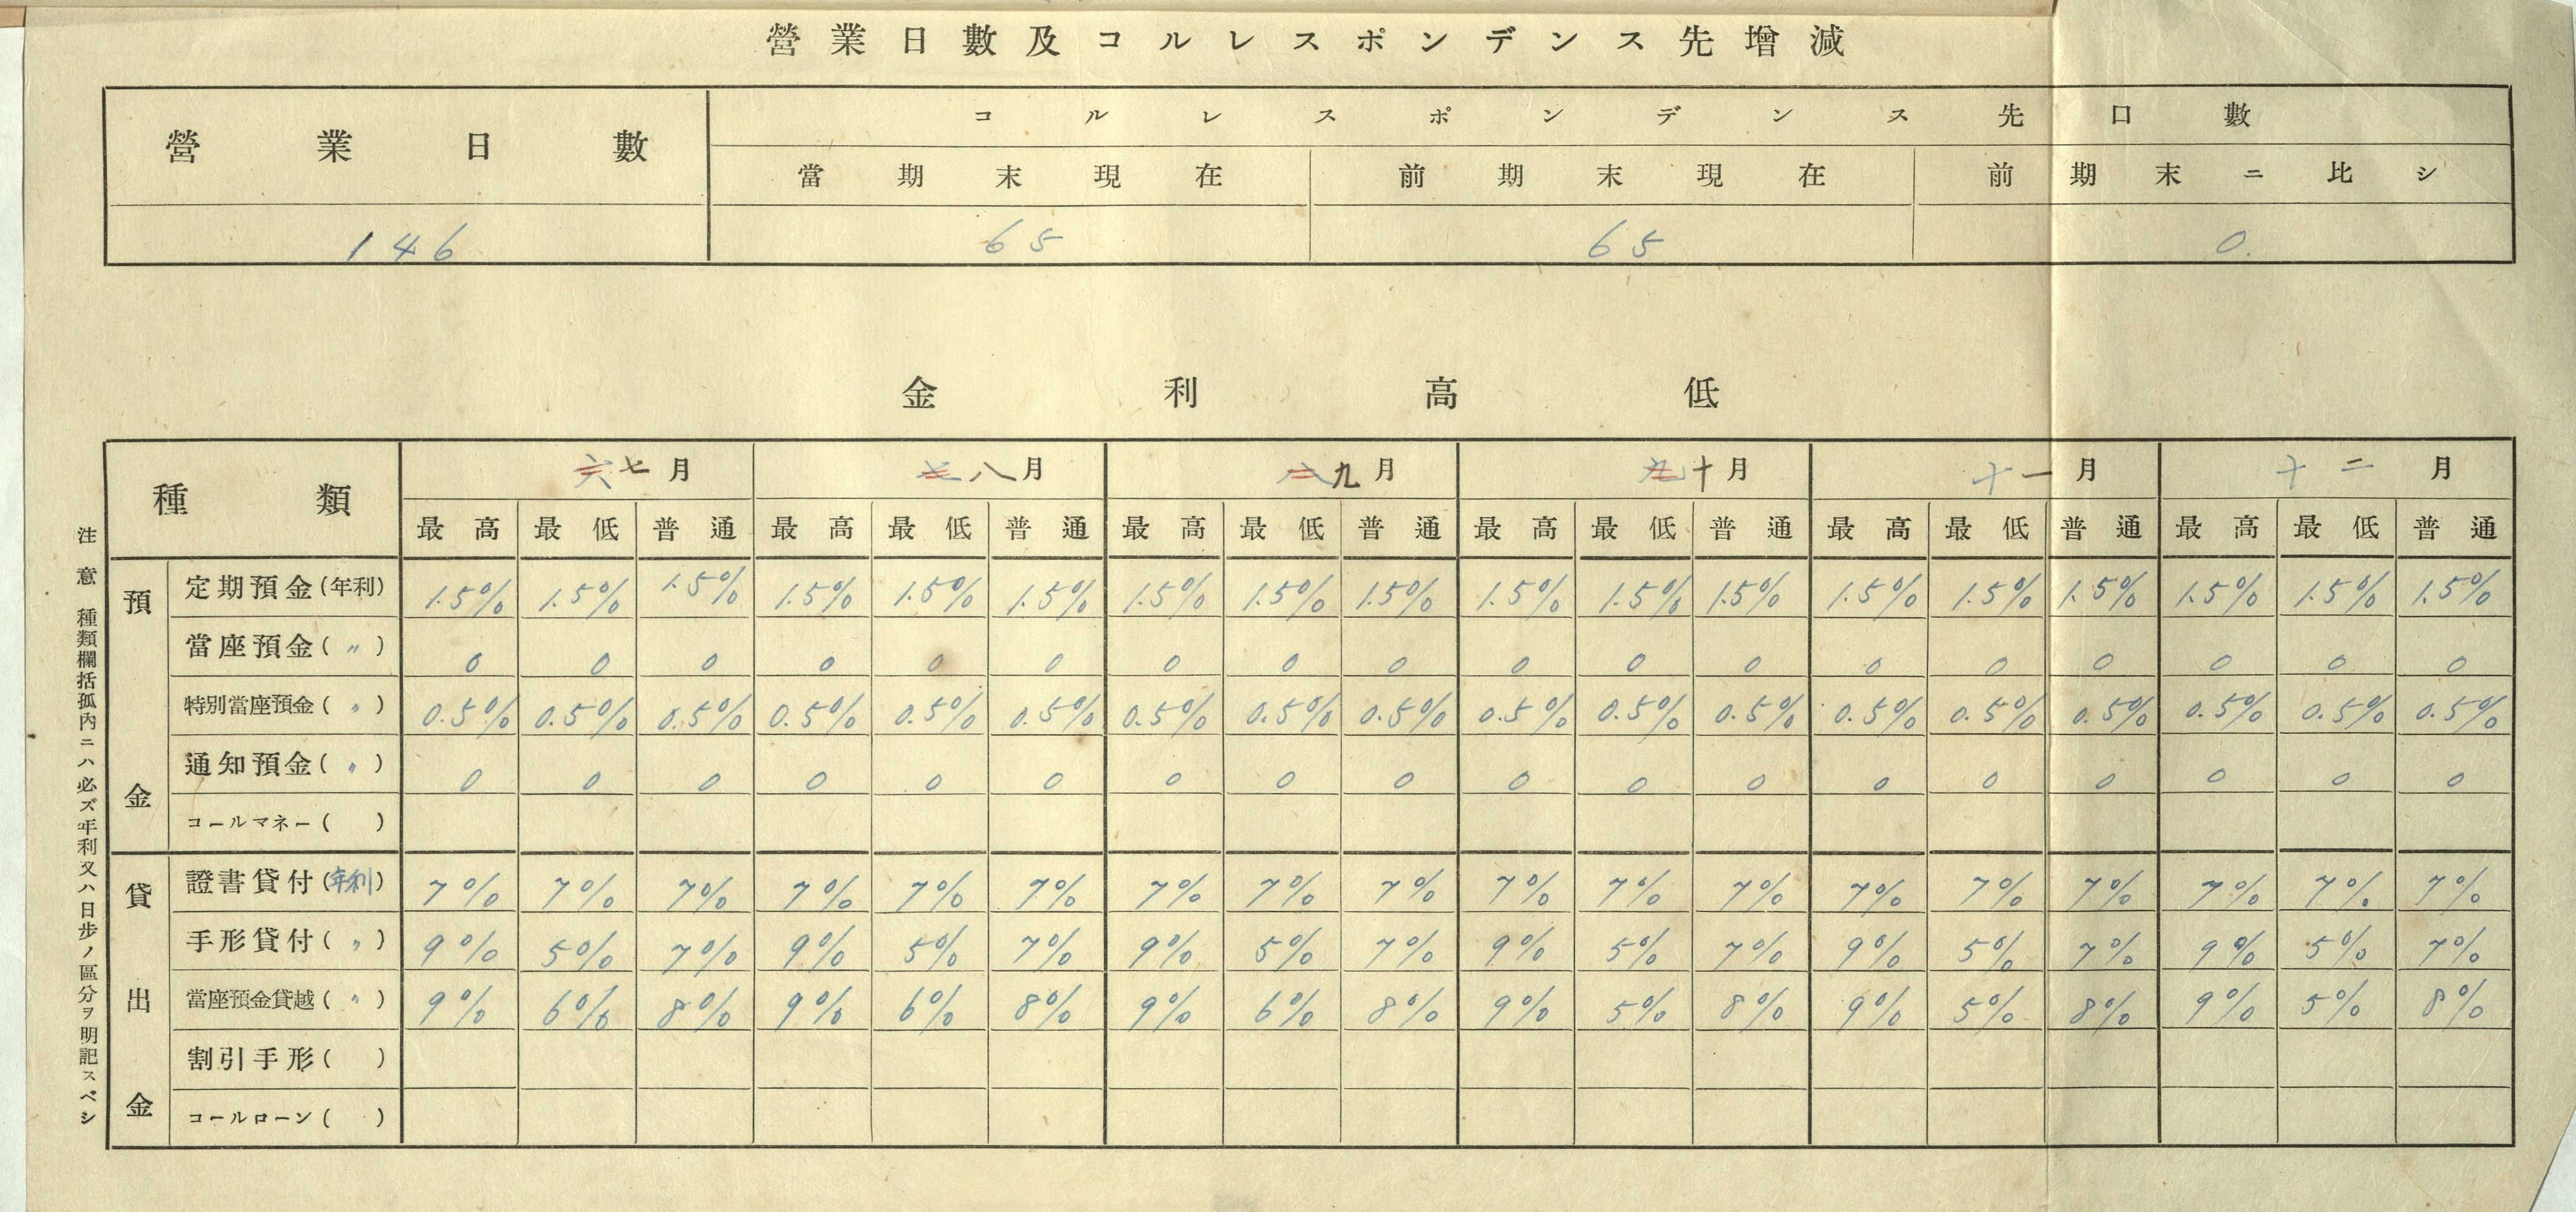 營業日數及コルレスポンデンス先增減
營業日數
コルレスポンデンス先口數
當期末現在 前期末現在 前期末ニ比シ
146 65 65 0.
金利高低
種類 六七月 七八月 八九月 九十月 十一月 十二月
最高 最低 普通 最高 最低 普通 最高 最低 普通 最高 最低 普通 最高 最低 普通 最高 最低 普通
預金
定期預金(年利) 1.5% 1.5% 1.5% 1.5% 1.5% 1.5% 1.5% 1.5% 1.5% 1.5% 1.5% 1.5% 1.5% 1.5% 1.5% 1.5% 1.5% 1.5%
當座預金(〃) 0 0 0 0 0 0 0 0 0 0 0 0 0 0 0 0 0 0
特別當座預金(〃) 0.5% 0.5% 0.5% 0.5% 0.5% 0.5% 0.5% 0.5% 0.5% 0.5% 0.5% 0.5% 0.5% 0.5% 0.5% 0.5% 0.5% 0.5%
通知預金(〃) 0 0 0 0 0 0 0 0 0 0 0 0 0 0 0 0 0 0
コールマネー( )
貸出金
證書貸付(年利) 7% 7% 7% 7% 7% 7% 7% 7% 7% 7% 7% 7% 7% 7% 7% 7% 7% 7%
手形貸付(〃) 9% 5% 7% 9% 5% 7% 9% 5% 7% 9% 5% 7% 9% 5% 7% 9% 5% 7%
當座預金貸越(〃) 9% 6% 8% 9% 6% 8% 9% 6% 8% 9% 5% 8% 9% 5% 8% 9% 5% 8%
割引手形( )
コールローン( )
注意 種類欄括孤內ニハ必ズ年利又ハ日步ノ區分ヲ明記スベシ